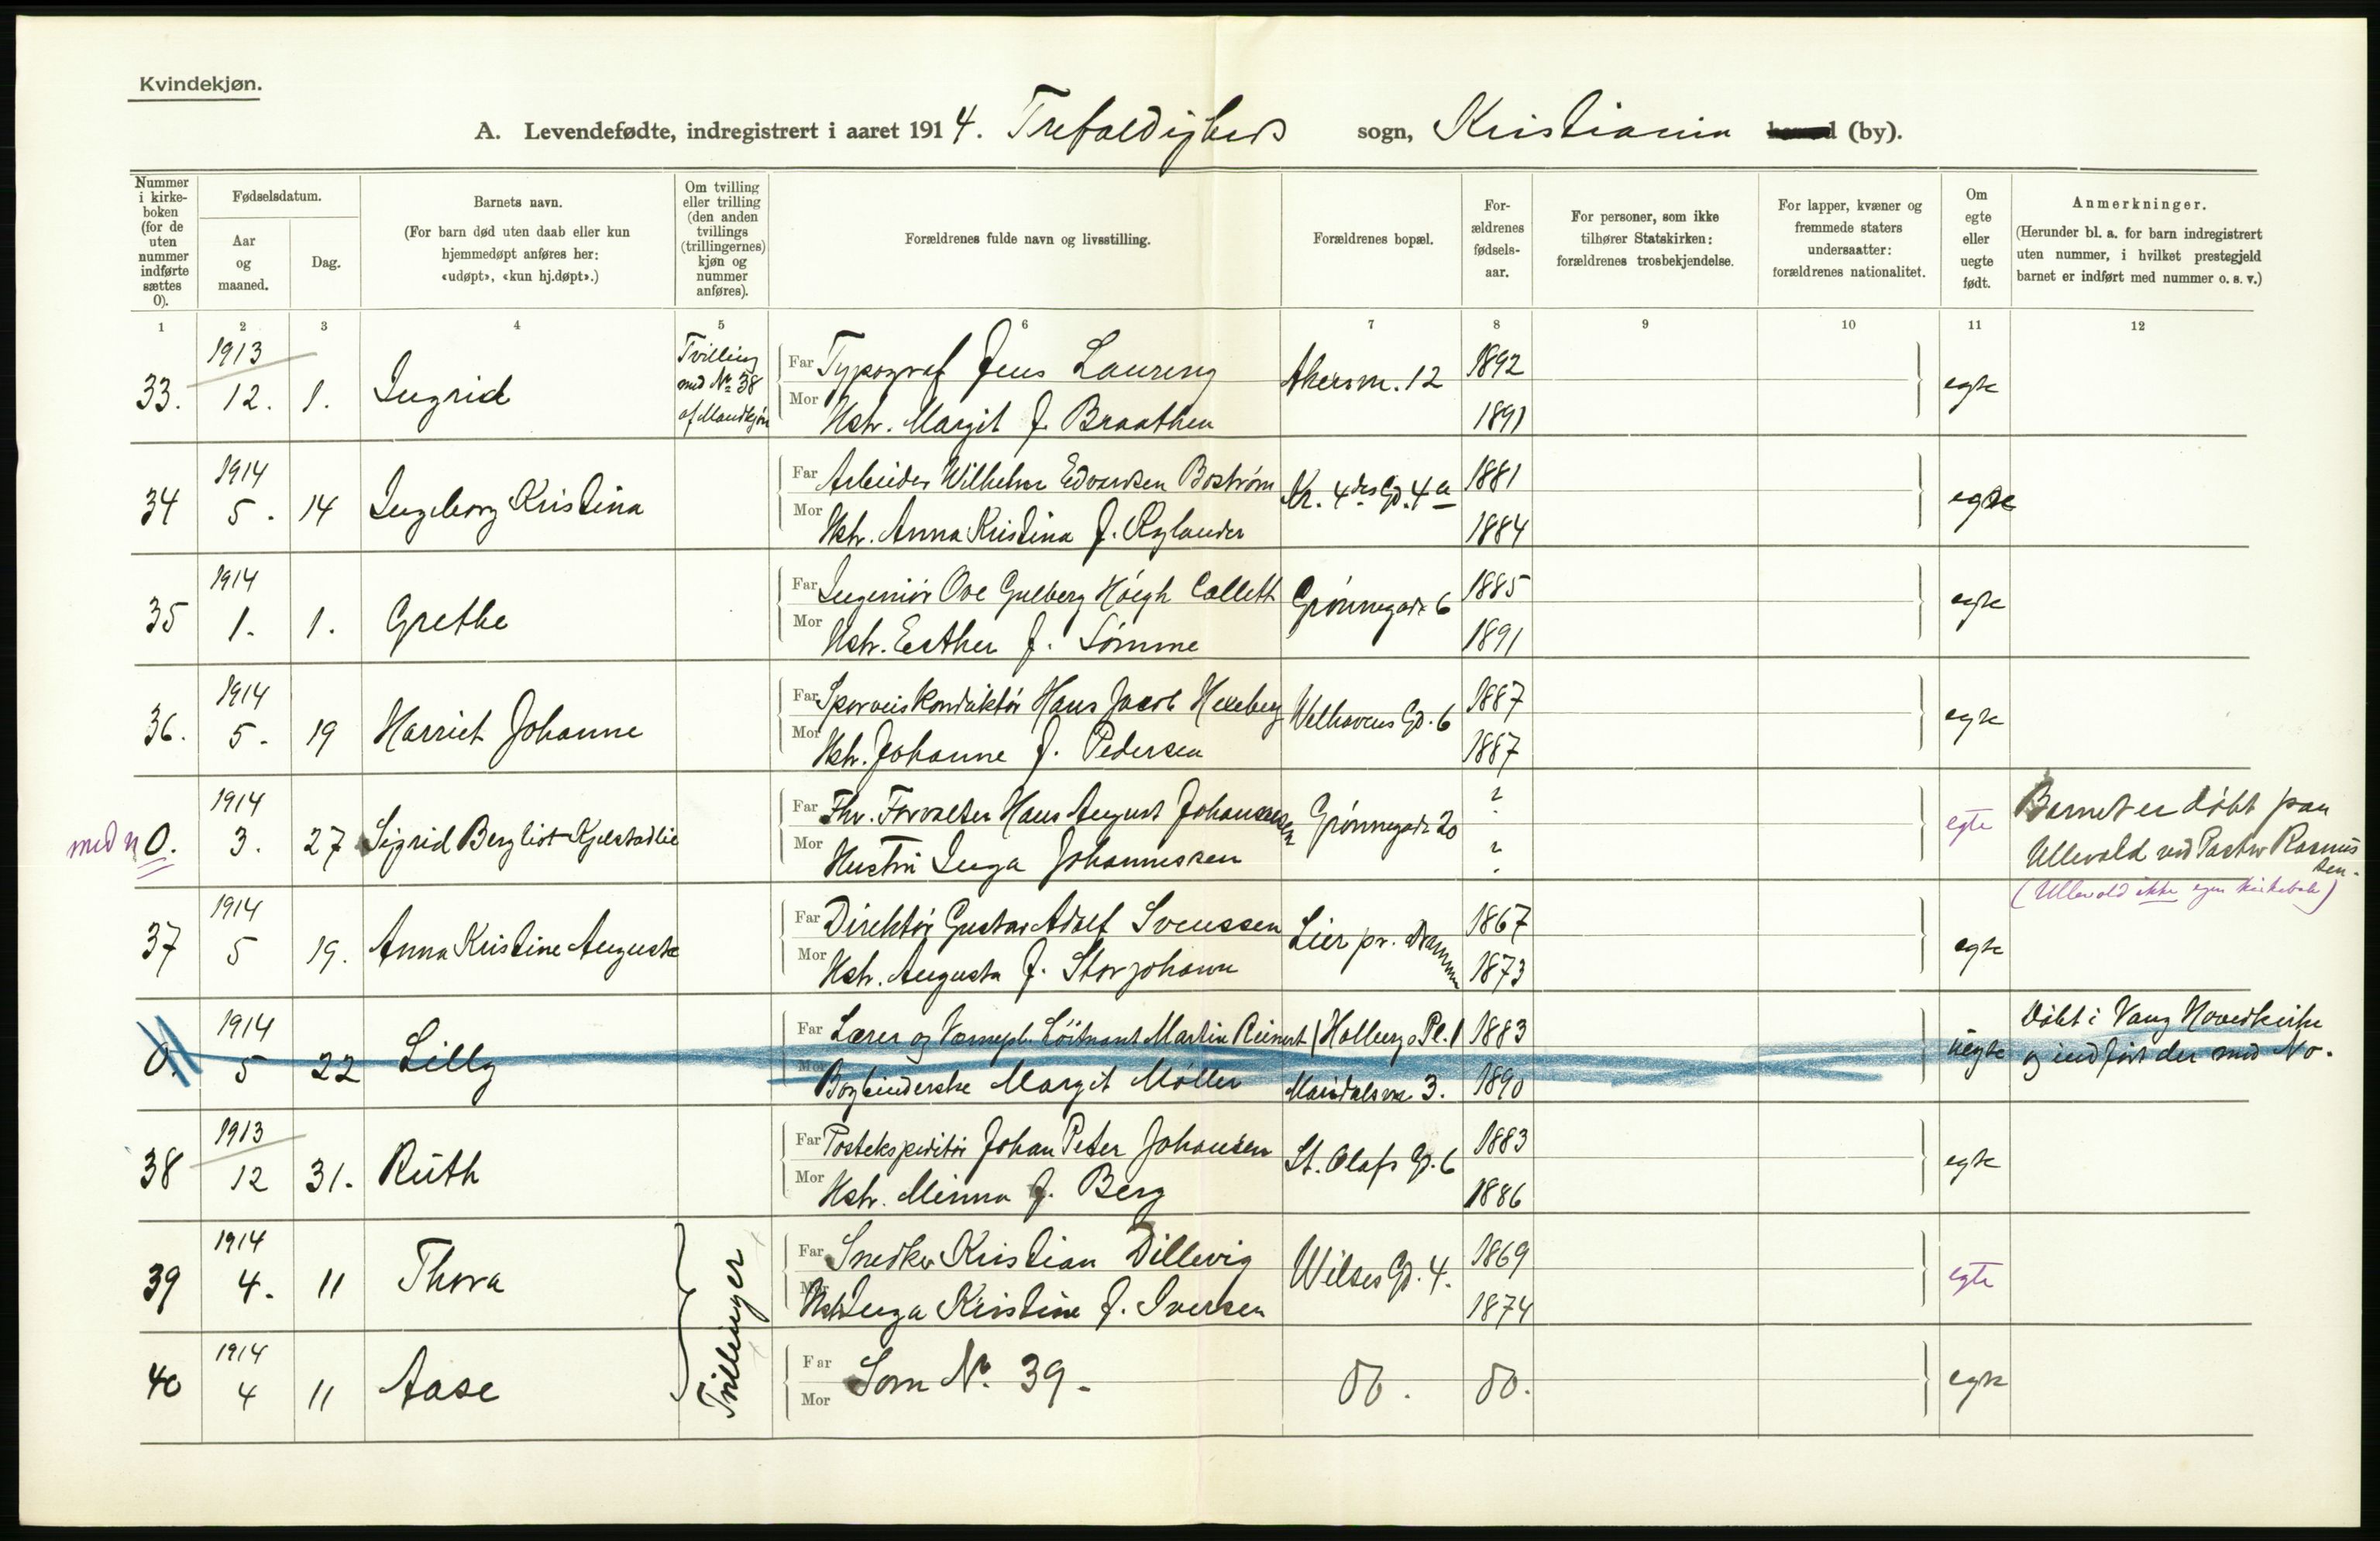 Kvindekjøn.
A. Levendefødte, indregistrert i aaret 1914. Trefoldigheds sogn, Kristiania (by).
Nummer i kirkeboken (for de uten nummer indførte sættes 0).
Fødselsdatum.
Aar og maaned.
Dag.
Barnets navn.
(For barn død uten daab eller kun hjemmedøpt anføres her: «udøpt», «kun hj.døpt».)
Om tvilling eller trilling (den anden tvillings (trillingernes) kjøn og nummer anføres).
Forældrenes fulde navn og livsstilling.
Forældrenes bopæl.
Forældrenes fødselsaar.
For personer, som ikke tilhører Statskirken: forældrenes trosbekjendelse.
For lapper, kvæner og fremmede staters undersaatter: forældrenes nationalitet.
Om egte eller uegte født.
Anmerkninger.
(Herunder bl. a. for barn indregistrert uten nummer, i hvilket prestegjeld barnet er indført med nummer o. s. v.)
1 2 3 4 5 6 7 8 9 10 11 12
33. 1913 12. 1. Ingrid Tvilling med No 38 af Mandkjøn
Far Typograf Jens Laureng Akersv. 12 1892 egte
Mor Hstr. Margit f. Braathen 1891
34 1914 5. 14 Ingeborg Kristina
Far Arbeider Wilhelm Edvardsen Bostrøm Kr. 4des Gd. 4a 1881 egte
Mor Hstr. Anna Kristina f. Rylander 1884
35 1914 1. 1. Grethe
Far Ingeniør Ove Gulberg Høegh Collett Grønnegade 6 1885 egte
Mor Hstr. Esther f. Sømme 1891
36. 1914 5. 19 Harriet Johanne
Far Sporveiskonduktør Hans Jacob Helleberg Welhavens Gd. 6 1887 egte
Mor Hstr. Johanne f. Pedersen 1887
med n 0. 1914 3. 27 Sigrid Bergliot Kjelstadlie
Far Fhv. Forvalter Hans August Johannessen Grønnegade 20 ? egte
Mor Hustru Inga Johannessen ?
Barnet er døbt paa Ullevold ved Pastor Rasmussen.
(Ullevold ikke egen kirkebok)
37 1914 5 19. Anna Kristine Auguste
Far Direktør Gustav Adolf Svenssen Lier pr. Drammen 1867 egte
Mor Hstr. Augusta f. Storjohann 1873
0. 1914 5 22 Lilly
Far Lærer og Vernepl. Løitnant Martin Reinert Holbergs Pl. 1 1883 uegte
Mor Bogbinderske Margit Møller Maridalsv. 3. 1890
Døbt i Vang Hovedkirke og indført der med No.
38 1913 12 31. Ruth
Far Postekspeditør Johan Peter Johansen St. Olafs Gd. 6 1883 egte
Mor Hstr. Minna f. Berg 1886
39 1914 4. 11 Thora Trillinger
Far Snedker Kristian Dillevig Wilses Gd. 4. 1869 egte
Mor Hstr. Inga Kristine f. Iversen 1874
40 1914 4 11 Aase
Far Mor Som No. 39. do. do. egte